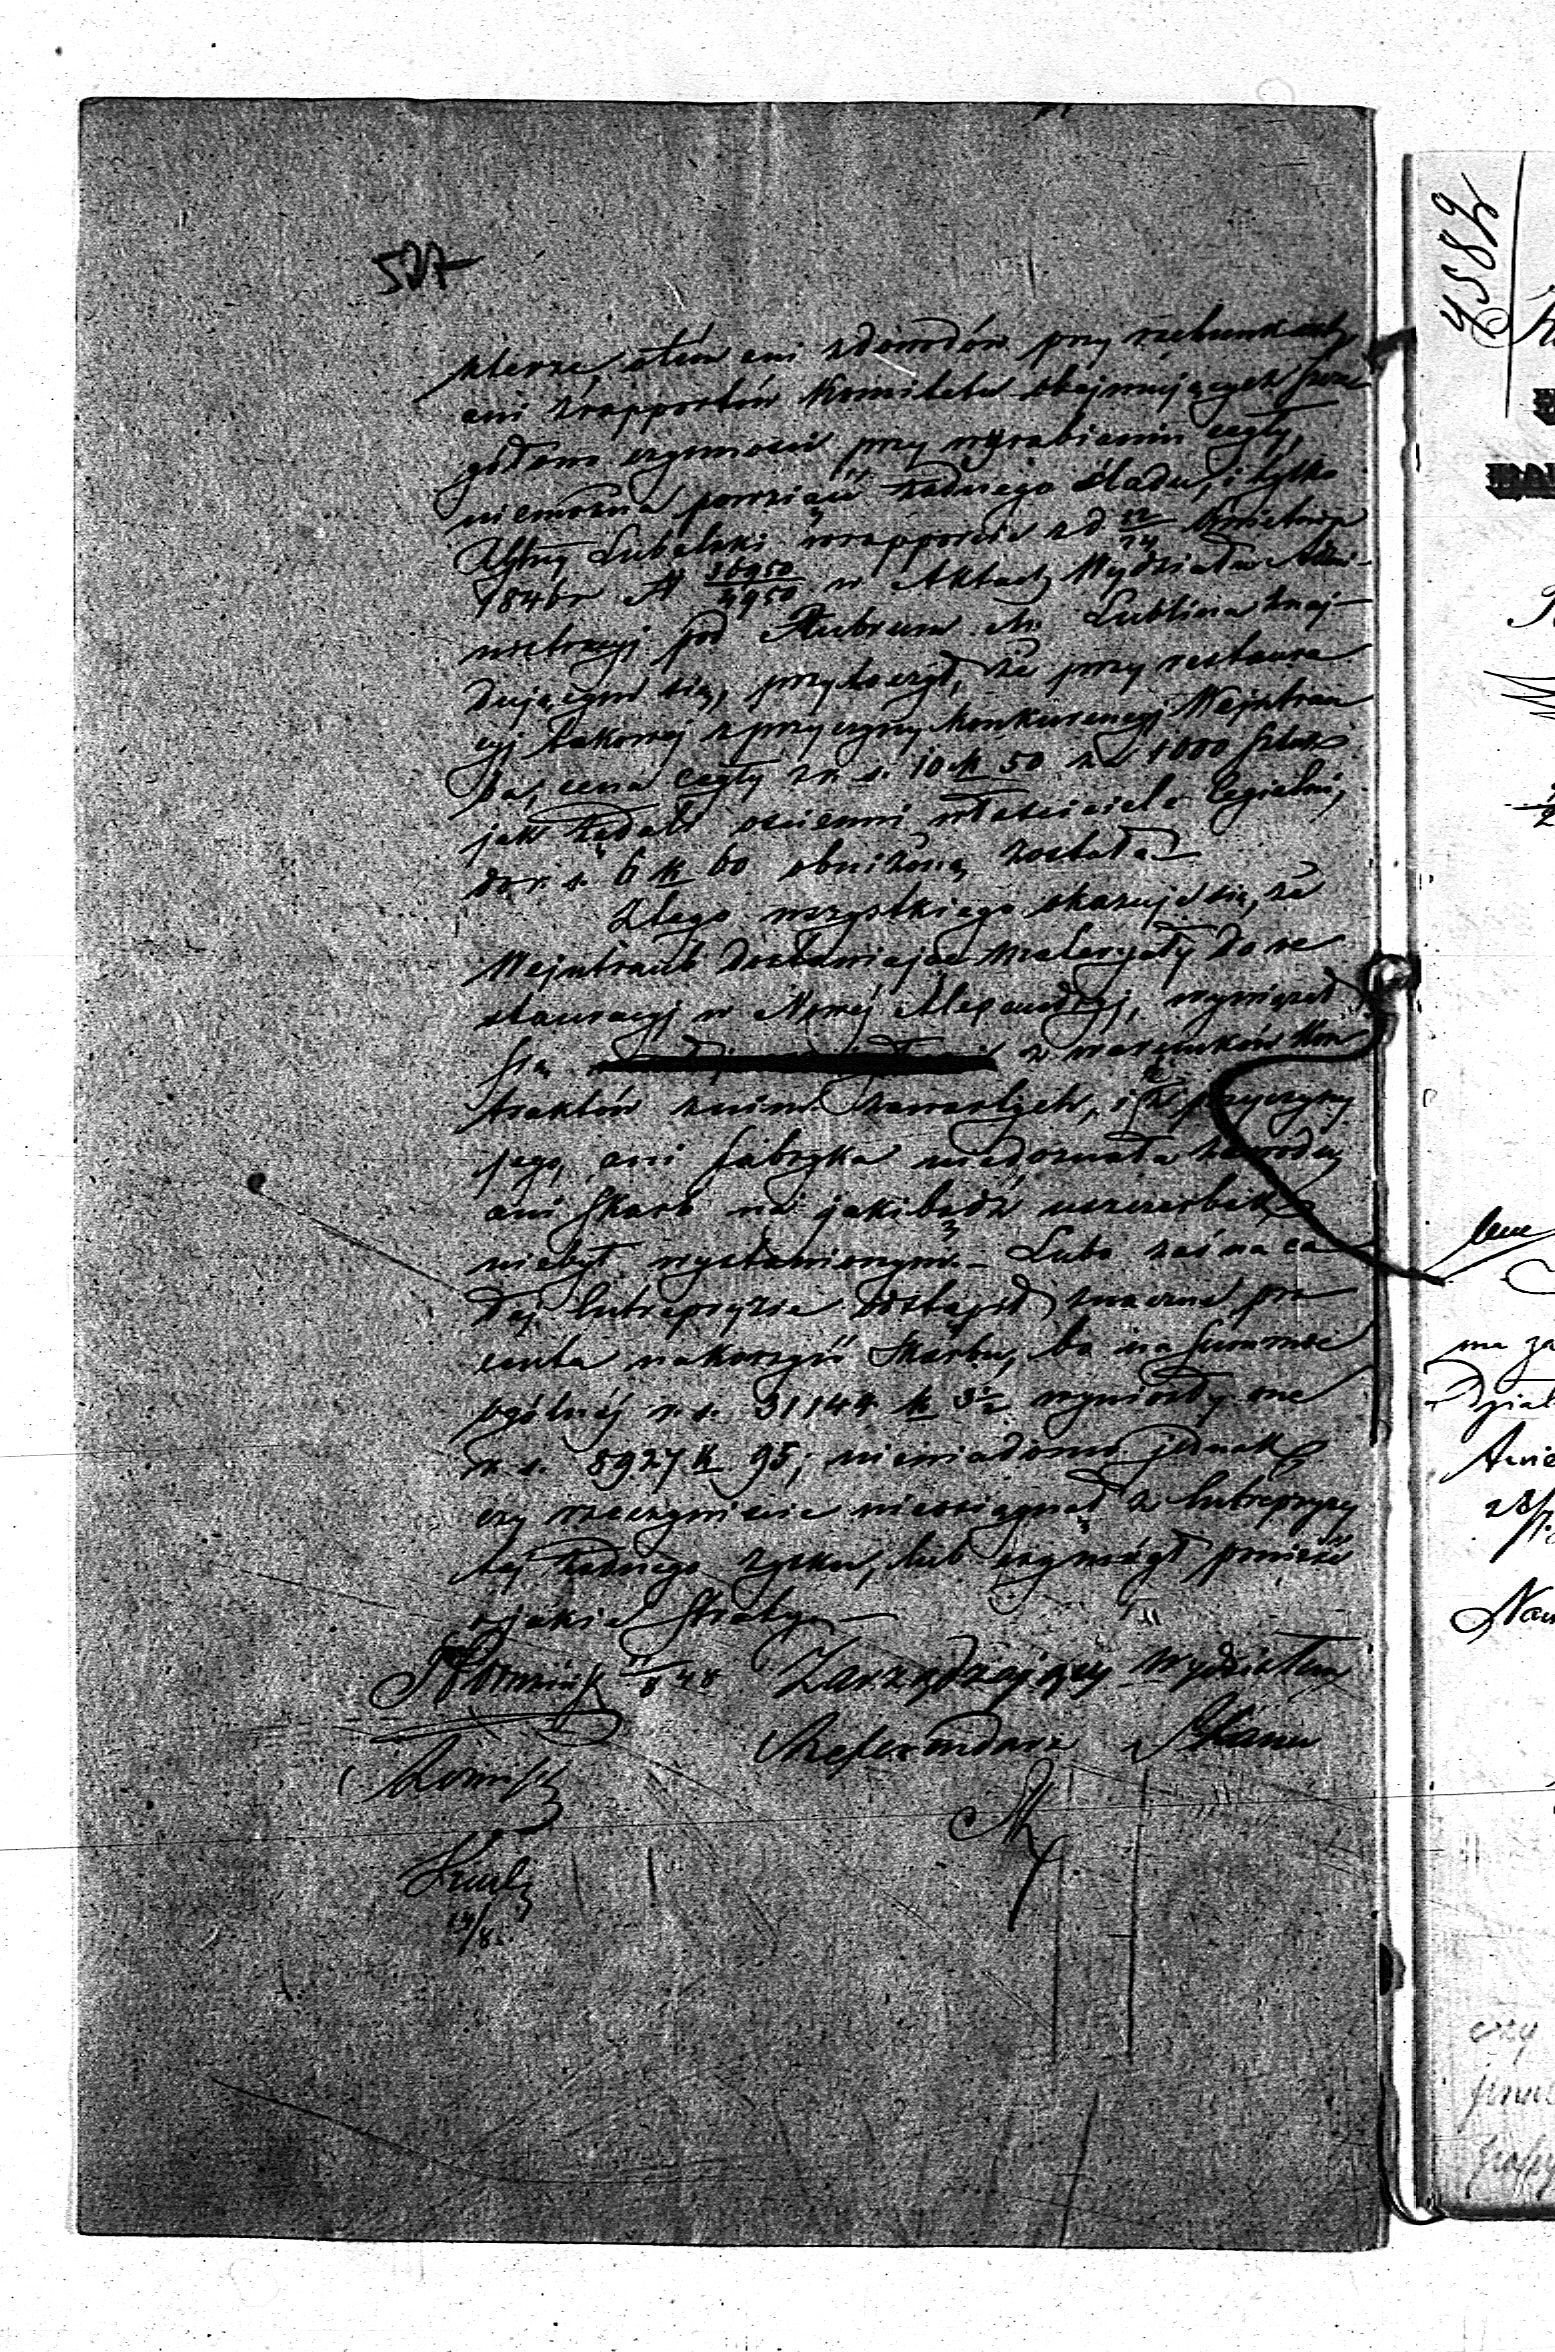 527
ktorze, o tém ani z dowodów przy rachunkach
ani z rapportów Komitetu obejmujących szcze
gółowe czynności przy wyrabianiu cegły,
niemożna powziąść żadnego śladu, i tylko
Lubelski w rapporcie z d 12/24 Kwietnia
1846 r N 36950/4950 w Aktach Wydziału Admi-
nistracyi pod Rubrum M. Lublina znaj-
dującym się, przytoczył, że przy restaura
cyi takowej z przyczyny konkurencyi Wejntrau
ba, cena cegły z r. s. 10 k 50 za 1000 sztuk
jak żądali ościenni właściciele Cegielni,
do r. s. 6 k 60 obniżoną została.
Z tego wszystkiego okazuje się, że
Wejntraub dostawiając materyały do re
stauracyi w Nowéj Alexandryi, wywiązał
się z warunków Kon
traktów z nim zawartych, i że z przyczyny
jego, ani fabryka niedoznała zawodu,
ani Skarb na jakibądź uszczerbek
niebył wystawionym. – Lubo zaś na ca
łej Entrepryzie odstąpił znaczne pro
centa na korzyść Skarbu, bo na summie
ogólnéj r. s. 31144 k 3½ wyniosły one
r. s. 8927 k 95; niewiadomo jednak
czy rzeczywiście nieosiągnął z Entrepryzy
tej żadnego zysku, lub czy mógł ponieść
jakie straty. –
Zarządzający Wydziałem
Referendarz Stanu
14/8
4582
ma za
czy